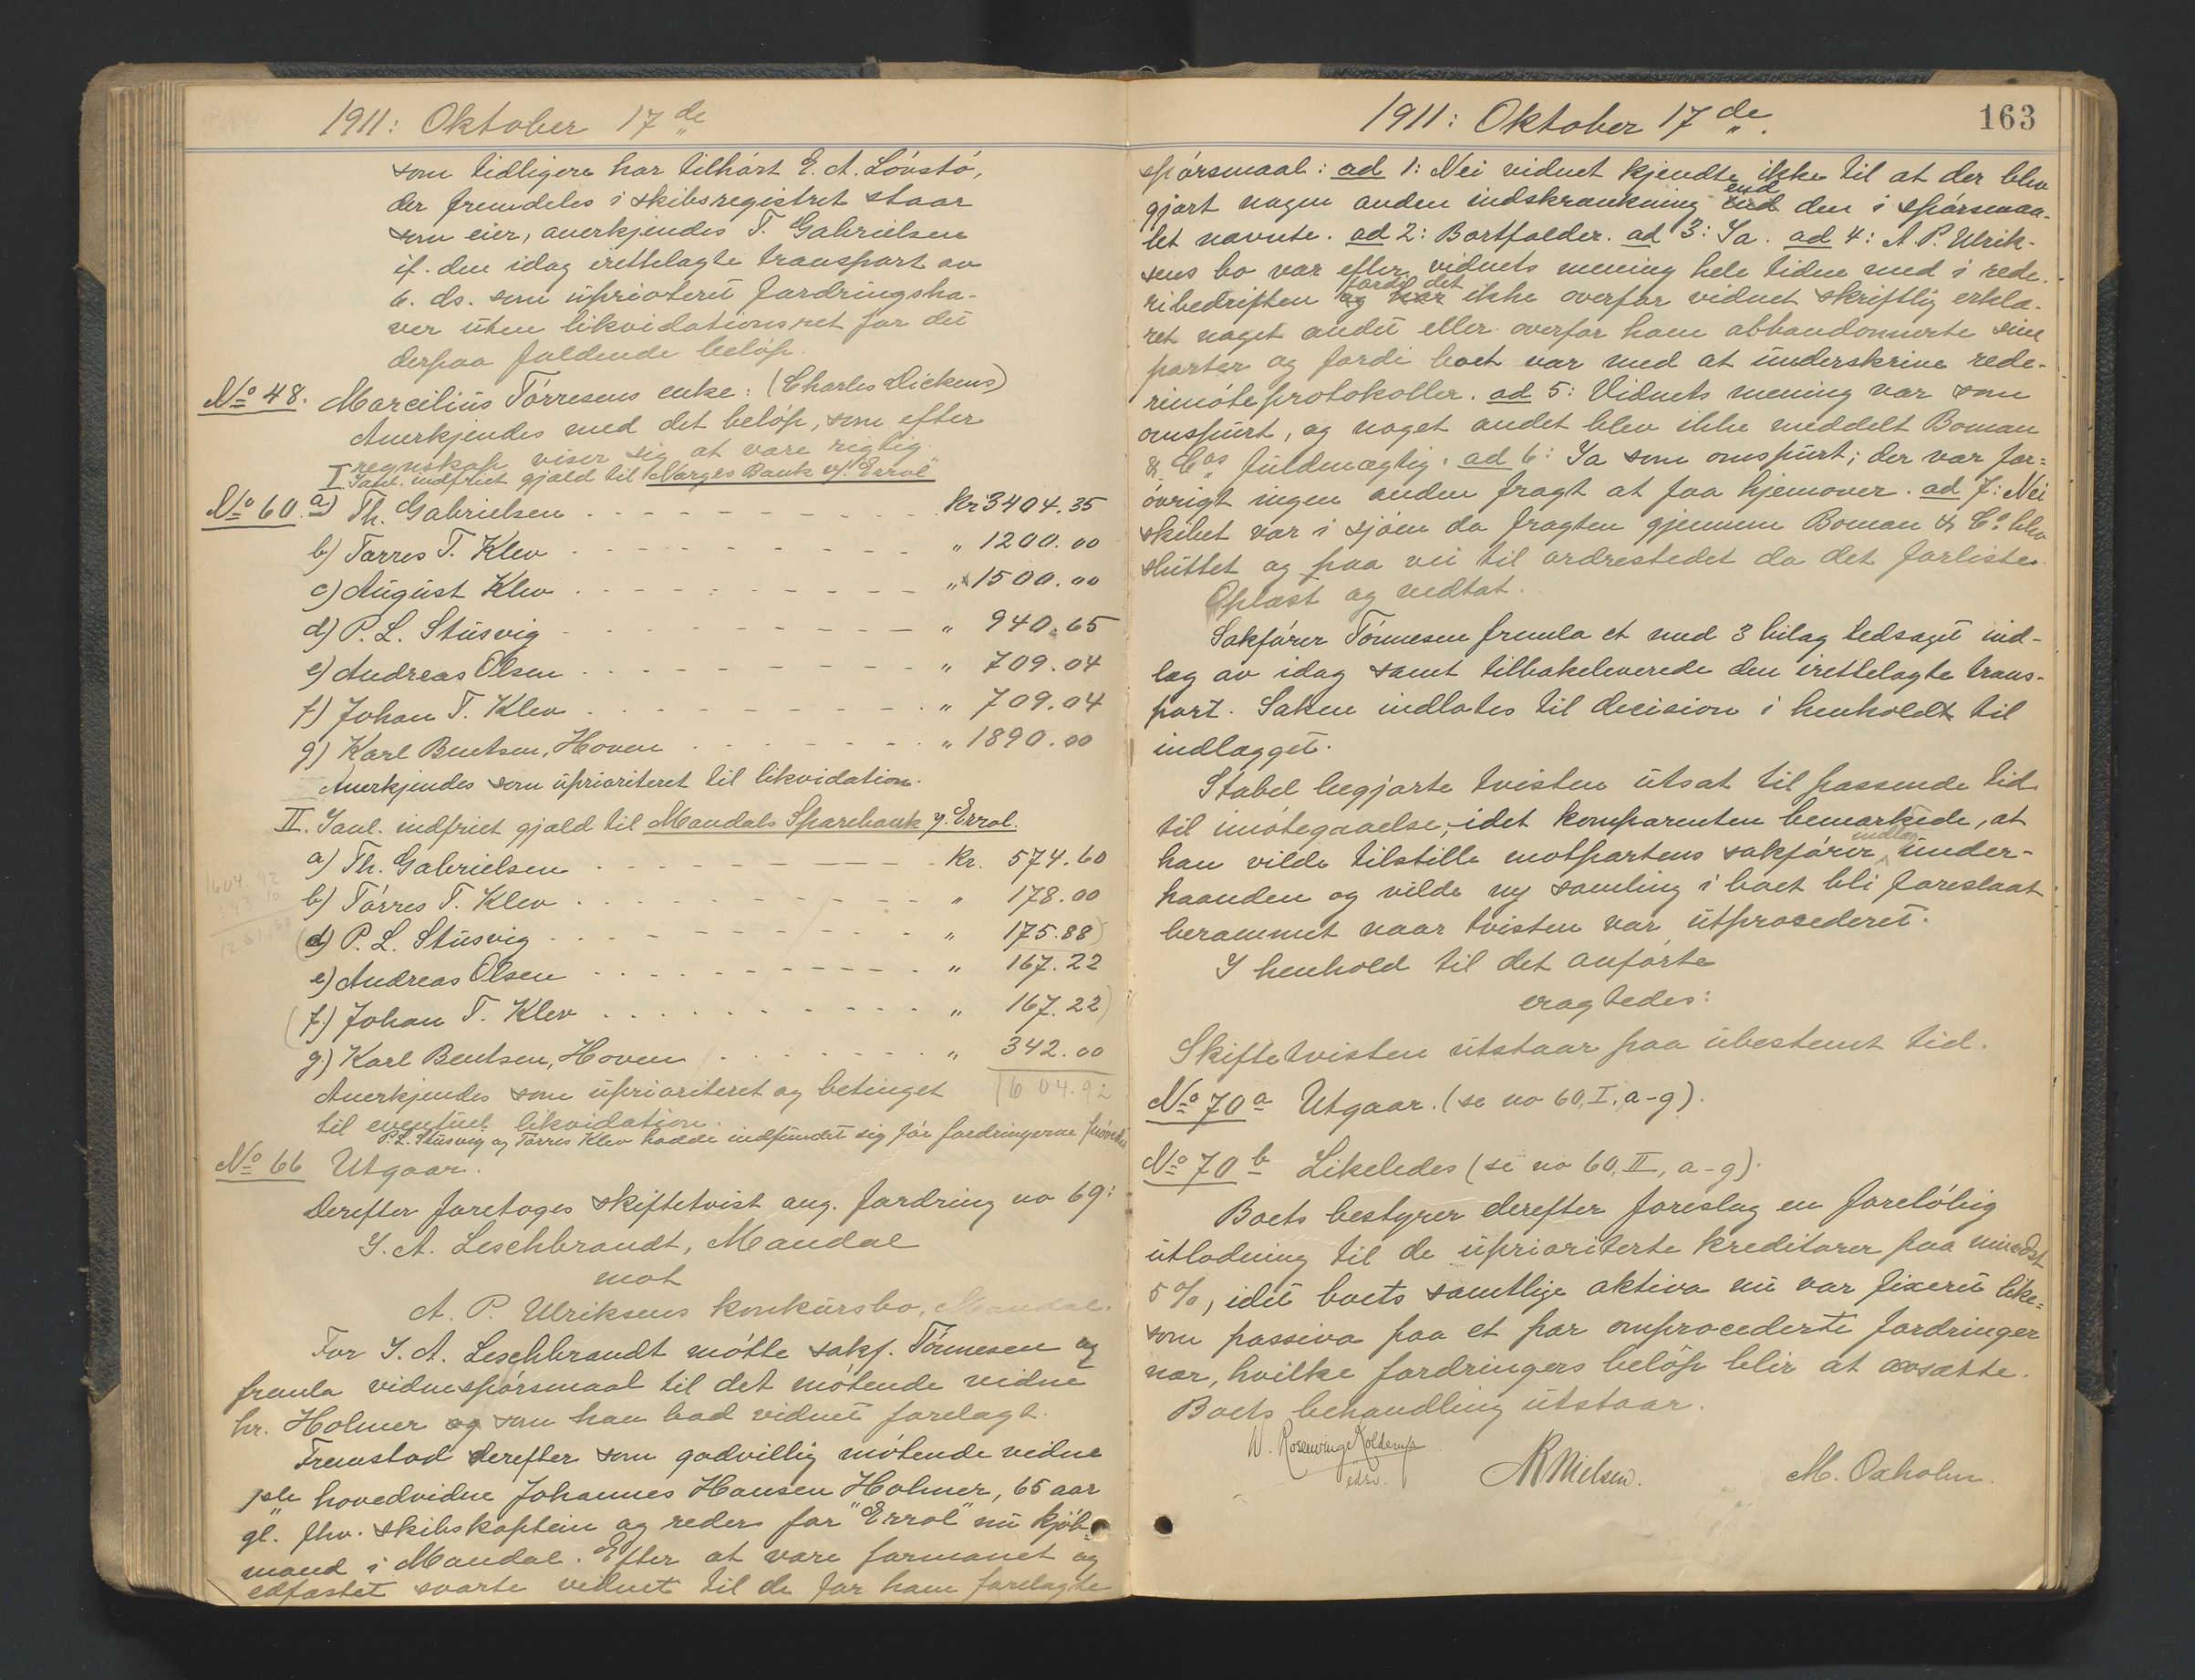 1911: Oktober 17de
som tidligere har tilhørt E. A. Løvstø,
der fremdeles i skibsregistret staar
som eier, anerkjendes T. Gabrielsen
if. den idag irettelagte transport av
6. ds. som uprioritert fordringsha-
ver uten likvidationsret for det
derpaa faldende beløp.
No 48. Marcilius Tørresens enke: (Charles Dickens)
Anerkjendes med det beløp, som efter
regnskap viser sig at være rigtig.
I. indfriet gjæld til Norges Bank v/ "Errol"
No 60. a) Th. Gabrielsen . . . Kr 3404.35
b) Tørres T. Klev . . . " 1200.00
c) August Klev . . . " 1500.00
d) P. L. Stusvig . . . " 940.65
e) Andreas Olsen . . . " 709.04
f) Johan T. Klev . . . " 709.04
g) Karl Bentsen, Hoven . . . " 1890.00
Anerkjendes som uprioriteret til likvidation.
II. indfriet gjæld til Mandals Sparebank v. Errol.
a) Th. Gabrielsen . . . Kr. 574.60
b) Tørres T. Klev . . . " 178.00
(d) P. L. Stusvig . . . " 175.88)
e) Andreas Olsen . . . " 167.22
(f.) Johan T. Klev . . . " 167.22)
g.) Karl Bentsen, Hoven . . . " 342.00
1604.92
Anerkjendes som uprioriteret og betinget
til eventuel likvidation.
P.L. Stusvig og Tørres Klev hadde indfundet sig før fordringerne prøvedes
No 66 Utgaar.
Derefter foretoges skiftetvist ang. fordring no 69:
I. A. Leschbrandt, Mandal
mot
A. P. Ulriksens konkursbo, Mandal.
For I. A. Leschbrandt møtte sakf. Tønnesen og
fremla vidnespørsmaal til det møtende vidne
hr. Holmer og som han bad vidnet forelagt.
Fremstod derefter som godvillig møtende vidne
1ste hovedvidne Johannes Hansen Holmer, 65 aar
gl. fhv. skibskaptein og reder for "Errol" nu kjøb-
mand i Mandal. Efter at være formanet og
edfæstet svarte vidnet til de for ham forelagte
1911: Oktober 17de.
163
spørsmaal: ad 1: Nei vidnet kjendte ikke til at der blev
gjort nogen anden indskrænkning end den i spørsmaa-
let nævnte. ad 2: Bortfalder. ad 3: Ja. ad 4: A. P. Ulrik-
sens bo var efter vidnets mening hele tiden med i rede-
ribedriften fordi det ikke overfor vidnet skriftlig erklæ-
ret noget andet eller overfor ham abbandonnerte sine
parter og fordi boet var med at underskrive rede-
rimøteprotokoller. ad 5: Vidnets mening var som
omspurt, og noget andet blev ikke meddelt Boman
& Cos fuldmægtig. ad 6: Ja som omspurt; der var for=
øvrigt ingen anden fragt at faa hjemover. ad 7: Nei
skibet var i sjøen da fragten gjennem Boman & Co. blev
sluttet og paa vei til ordrestedet da det forliste.
Oplæst og vedtat.
Sakfører Tønnesen fremla et med 3 bilag ledsaget ind-
læg av idag samt tilbakeleverede den irettelagte trans-
port. Saken indlates til decision i henholdt til
indlægget.
Stabel begjærte tvisten utsat til passende tid
til imøtegaaelse, idet komparenten bemærkede, at
han vilde tilstille motpartens sakfører indlæg under-
haanden og vilde ny samling i boet bli foreslaat
berammet naar tvisten var utprocederet.
I henhold til det anførte
eragtedes:
Skiftetvisten utstaar paa ubestemt tid.
No 70a Utgaar. (se no 60, I, a-g).
No 70b Likeledes (se no 60, II, a-g).
Boets bestyrer derefter foreslog en foreløbig
utlodning til de uprioriterte kreditorer paa mindst
5%, idet boets samtlige aktiva nu var fixeret like=
som passiva paa et par omprocederte fordringer
nær, hvilke fordringers beløp blir at avsætte.
Boets behandling utstaar.
N. Rosenvinge Kolderup
edsv.
Nielsen.
M. Oxholm.